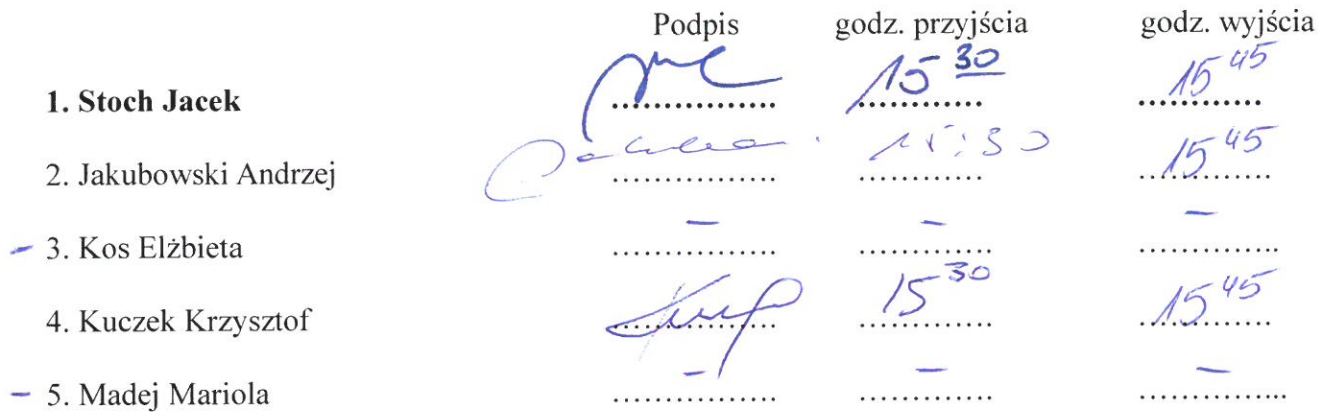 Podpis godz. przyjścia godz. wyjścia
1. Stoch Jacek ................ 15 30 ............ 15 45 ............
2. Jakubowski Andrzej ................ 15:30 ............. 15 45 .............
- 3. Kos Elżbieta - ................ - ............. - ..............
4. Kuczek Krzysztof ................ 15 30 ............. 15 45 .............
- 5. Madej Mariola - ................ - ............. - ...............